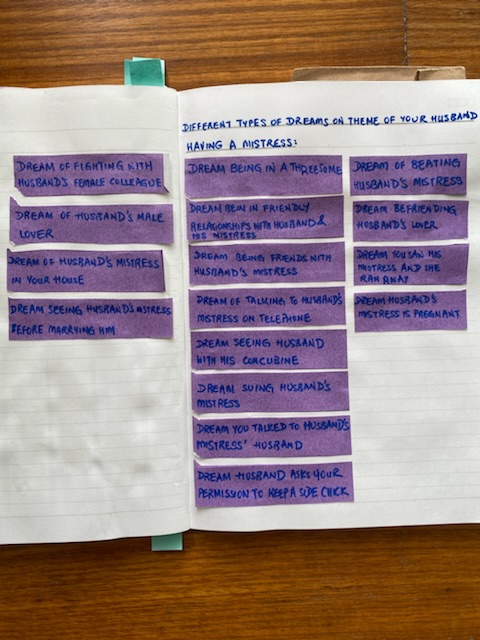 DREAM OF FIGHTING WITH
HUSBAND'S FEMALE COLLEAGUE
DREAM OF HUSBAND'S MALE
LOVER
DREAM OF HUSBAND'S MISTRESS
IN YOUR HOUSE
DREAM SEEING HUSBAND'S MISTRESS
BEFORE MARRYING HIM
DIFFERENT TYPES OF DREAMS ON THEME OF YOUR HUSBAND
HAVING A MISTRESS:
DREAM BEING IN A THREESOME
DREAM BEIN IN FRIENDLY
RELATIONSHIPS WITH HUSBAND &
HIS MISTRESS
DREAM BEING FRIENDS WITH
HUSBAND'S MISTRESS
DREAM OF TALKING TO HUSBAND'S
MISTRESS ON TELEPHONE
DREAM SEEING HUSBAND
WITH HIS CONCUBINE
DREAM SUING HUSBAND'S
MISTRESS
DREAM YOU TALKED TO HUSBAND'S
MISTRESS' HUSBAND
DREAM HUSBAND ASKS YOUR
PERMISSION TO KEEP A SIDE CHICK
DREAM OF BEATING
HUSBAND'S MISTRESS
DREAM BEFRIENDING
HUSBAND'S LOVER
DREAM YOU SAW HIS
MISTRESS AND SHE
RAN AWAY
DREAM HUSBAND'S
MISTRESS IS PREGNANT